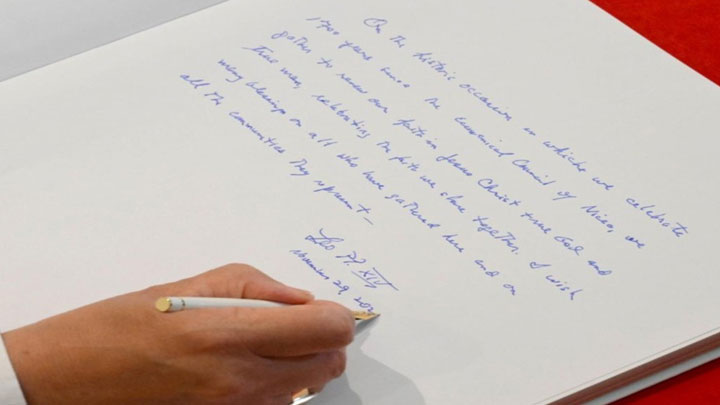 On the historic occasion in which we celebrate
1700 years since the ecumenical Council of Nicea, we
gather to renew our faith in Jesus Christ true God and
true man, celebrating the faith we share together. I wish
many blessings on all who have gathered here and on
all the communities they represent –
Leo PP. XIV
November 29, 202